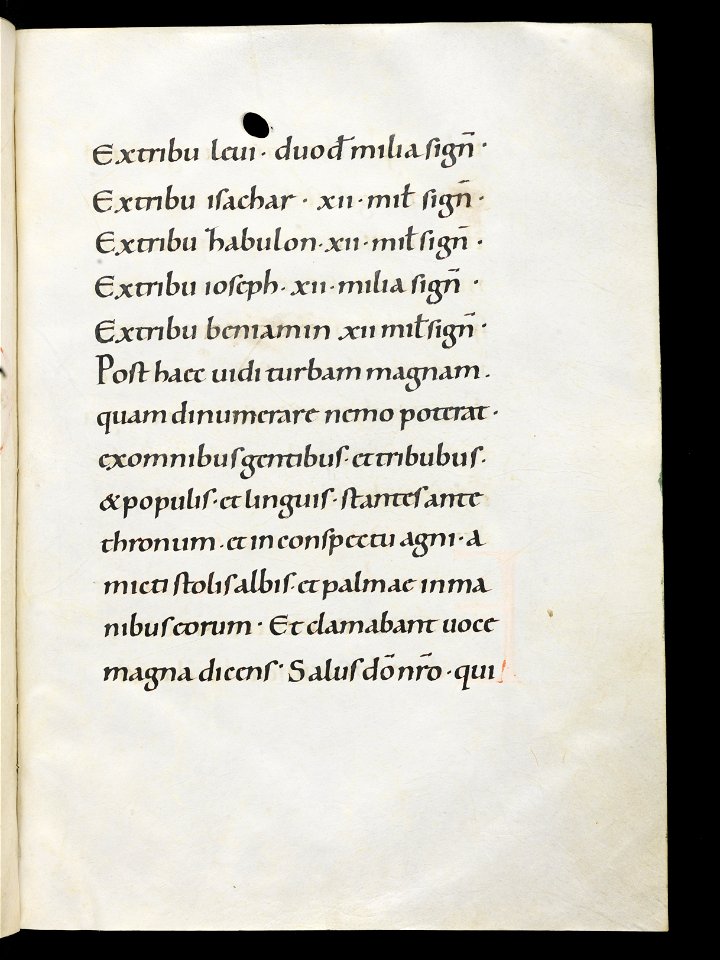 Extribu leui · duođ milia sign̄ ·
Extribu isachar · xii · mił sign̄ ·
Extribu habulon · xii · mił sign̄ ·
Extribu ioseph · xii · milia sign̄ ·
Extribu beniamin xii mił sign̄ ·
Post haec uidi turbam magnam .
quam dinumerare nemo poterat ·
exomnibus gentibus · et tribubus .
& populis · et linguis · stantes ante
thronum . et in conspectu agni · a
micti stolis albis · et palmae in ma
nibus eorum · Et clamabant uoce
magna dicens · Salus dō nr̄o · qui